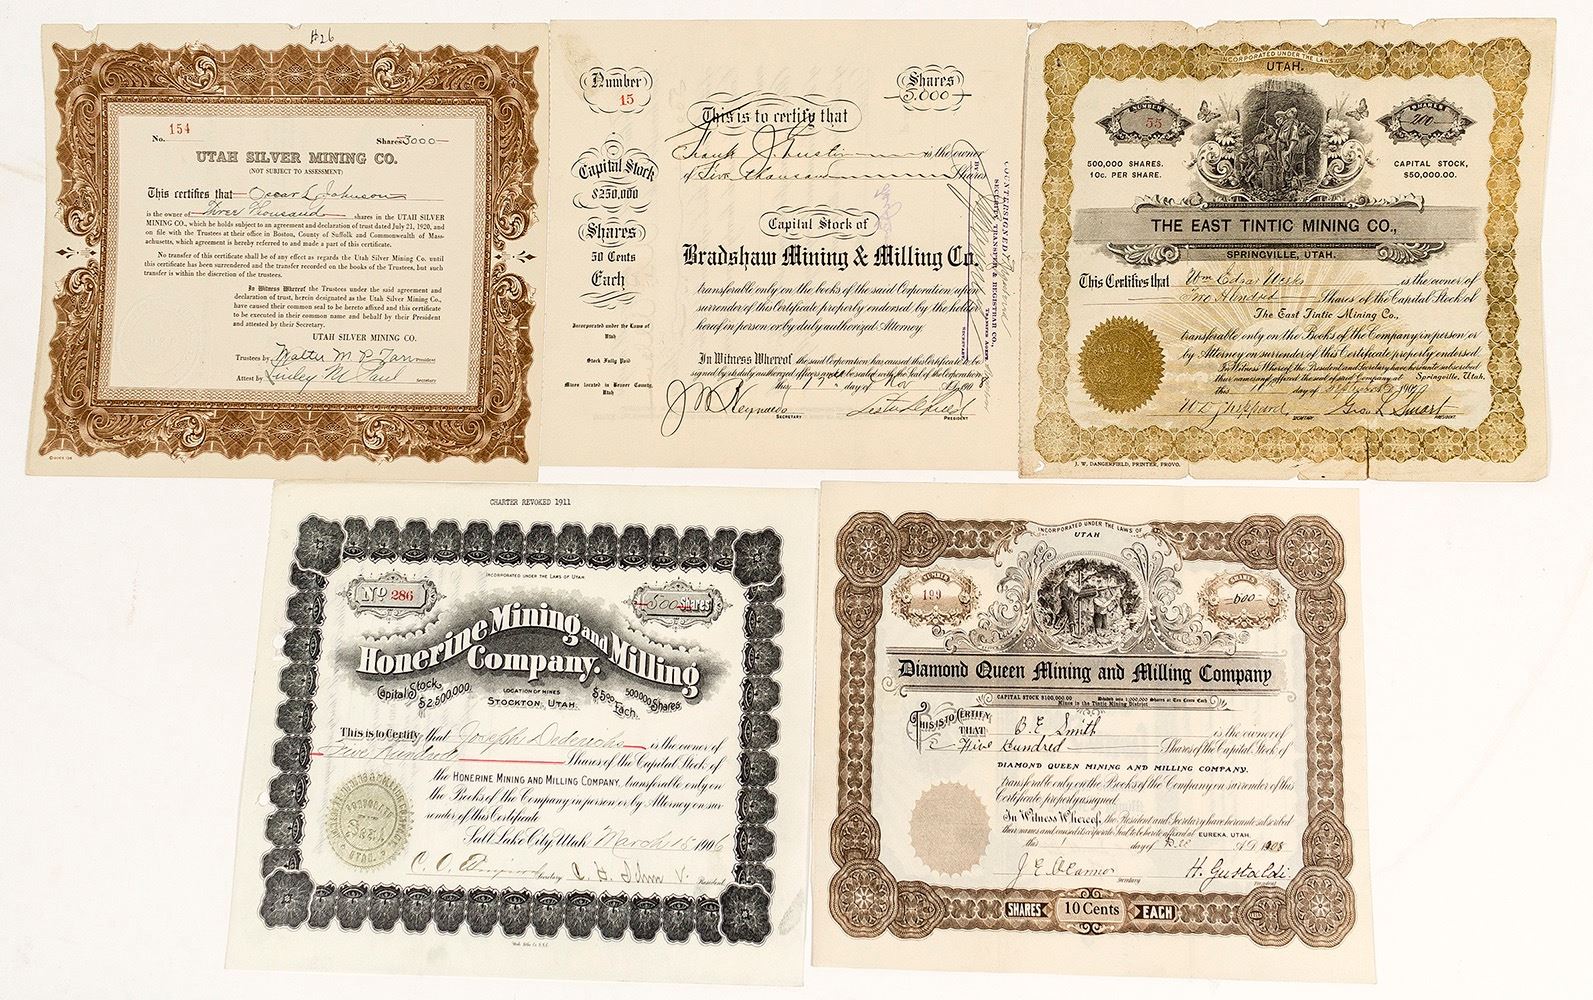 #26
No. 154
Shares 3000
UTAH SILVER MINING CO.
(NOT SUBJECT TO ASSESSMENT)
This certifies that Oscar L. Johnson
is the owner of Three Thousand shares in the UTAH SILVER
MINING CO., which he holds subject to an agreement and declaration of trust dated July 21, 1920, and
on file with the Trustees at their office in Boston, County of Suffolk and Commonwealth of Mas-
sachusetts, which agreement is hereby referred to and made a part of this certificate.
No transfer of this certificate shall be of any effect as regards the Utah Silver Mining Co. until
this certificate has been surrendered and the transfer recorded on the books of the Trustees, but such
transfer is within the discretion of the trustees.
In Witness Whereof the Trustees under the said agreement and
declaration of trust, herein designated as the Utah Silver Mining Co.,
have caused their common seal to be hereto affixed and this certificate
to be executed in their common name and behalf by their President
and attested by their Secretary.
UTAH SILVER MINING CO.
Trustees by Walter M. P. Tarr President
Attest by M. Paul Secretary
Number
15
Shares
5.000
This is to certify that
Frank J. Gustin is the owner
of Five thousand Shares
Capital Stock
$250,000
Shares
50 Cents
Each
Incorporated under the Laws of
Utah
Stock Fully Paid
Mines located in Beaver County,
Utah
Capital Stock of
Bradshaw Mining & Milling Co.
transferable only on the books of the said Corporation upon
surrender of this Certificate properly endorsed by the holder
hereof in person or by duly authorized Attorney.
In Witness Whereof the said Corporation has caused this Certificate to be
signed by its duly authorized officers and to be sealed with the Seal of the Corporation
this 17th day of Nov A.D. 1908
SECRETARY
PRESIDENT
COUNTERSIGNED
SECURITY TRANSFER & REGISTRAR CO.,
TRANSFER AGENT
BY
SECRETARY
INCORPORATED UNDER THE LAWS OF
UTAH.
NUMBER
55
SHARES
200
500,000 SHARES.
10C. PER SHARE.
CAPITAL STOCK,
$50,000.00.
THE EAST TINTIC MINING CO.,
SPRINGVILLE, UTAH.
This Certifies that Wm Edgar Weeks is the owner of
Two Hundred Shares of the Capital Stock of
The East Tintic Mining Co.,
transferable only on the Books of the Company in person or
by Attorney on surrender of this Certificate properly endorsed.
In Witness Whereof, the President and Secretary have hereunto subscribed
their names and affixed the seal of said Company at Springville, Utah,
this day of 190
SECRETARY.
Geo L Smart
PRESIDENT.
J. W. DANGERFIELD, PRINTER, PROVO.
CHARTER REVOKED 1911
INCORPORATED UNDER THE LAWS OF UTAH
No 286
500 Shares
Honerine Mining and Milling
Company.
Capital Stock
$2,500,000.
LOCATION OF MINES
STOCKTON, UTAH.
$5.00
Each.
500,000 Shares.
This is to Certify that Joseph Dederichs is the owner of
Five Hundred Shares of the Capital Stock of
the HONERINE MINING AND MILLING COMPANY, transferable only on
the Books of the Company in person or by Attorney on sur-
render of this Certificate
Salt Lake City, Utah March 15 1906
Secretary
President
INCORPORATED UNDER THE LAWS OF
UTAH
NUMBER
199
SHARES
500
Diamond Queen Mining and Milling Company
CAPITAL STOCK $100,000.00 Divided into 1,000,000 Shares at Ten Cents Each
Mines in the Tintic Mining District
THIS IS TO CERTIFY
THAT B. E. Smith is the owner of
Five Hundred Shares of the Capital Stock of
DIAMOND QUEEN MINING AND MILLING COMPANY.
transferable only on the Books of the Company on surrender of this
Certificate properly assigned.
In Witness Whereof, the President and Secretary have hereunto subscribed
their names and caused its corporate Seal to be hereto affixed at EUREKA, UTAH,
this 1 day of A.D. 1908
J. E. O'Connor
Secretary
H. Gustaldi
President
SHARES 10 Cents EACH